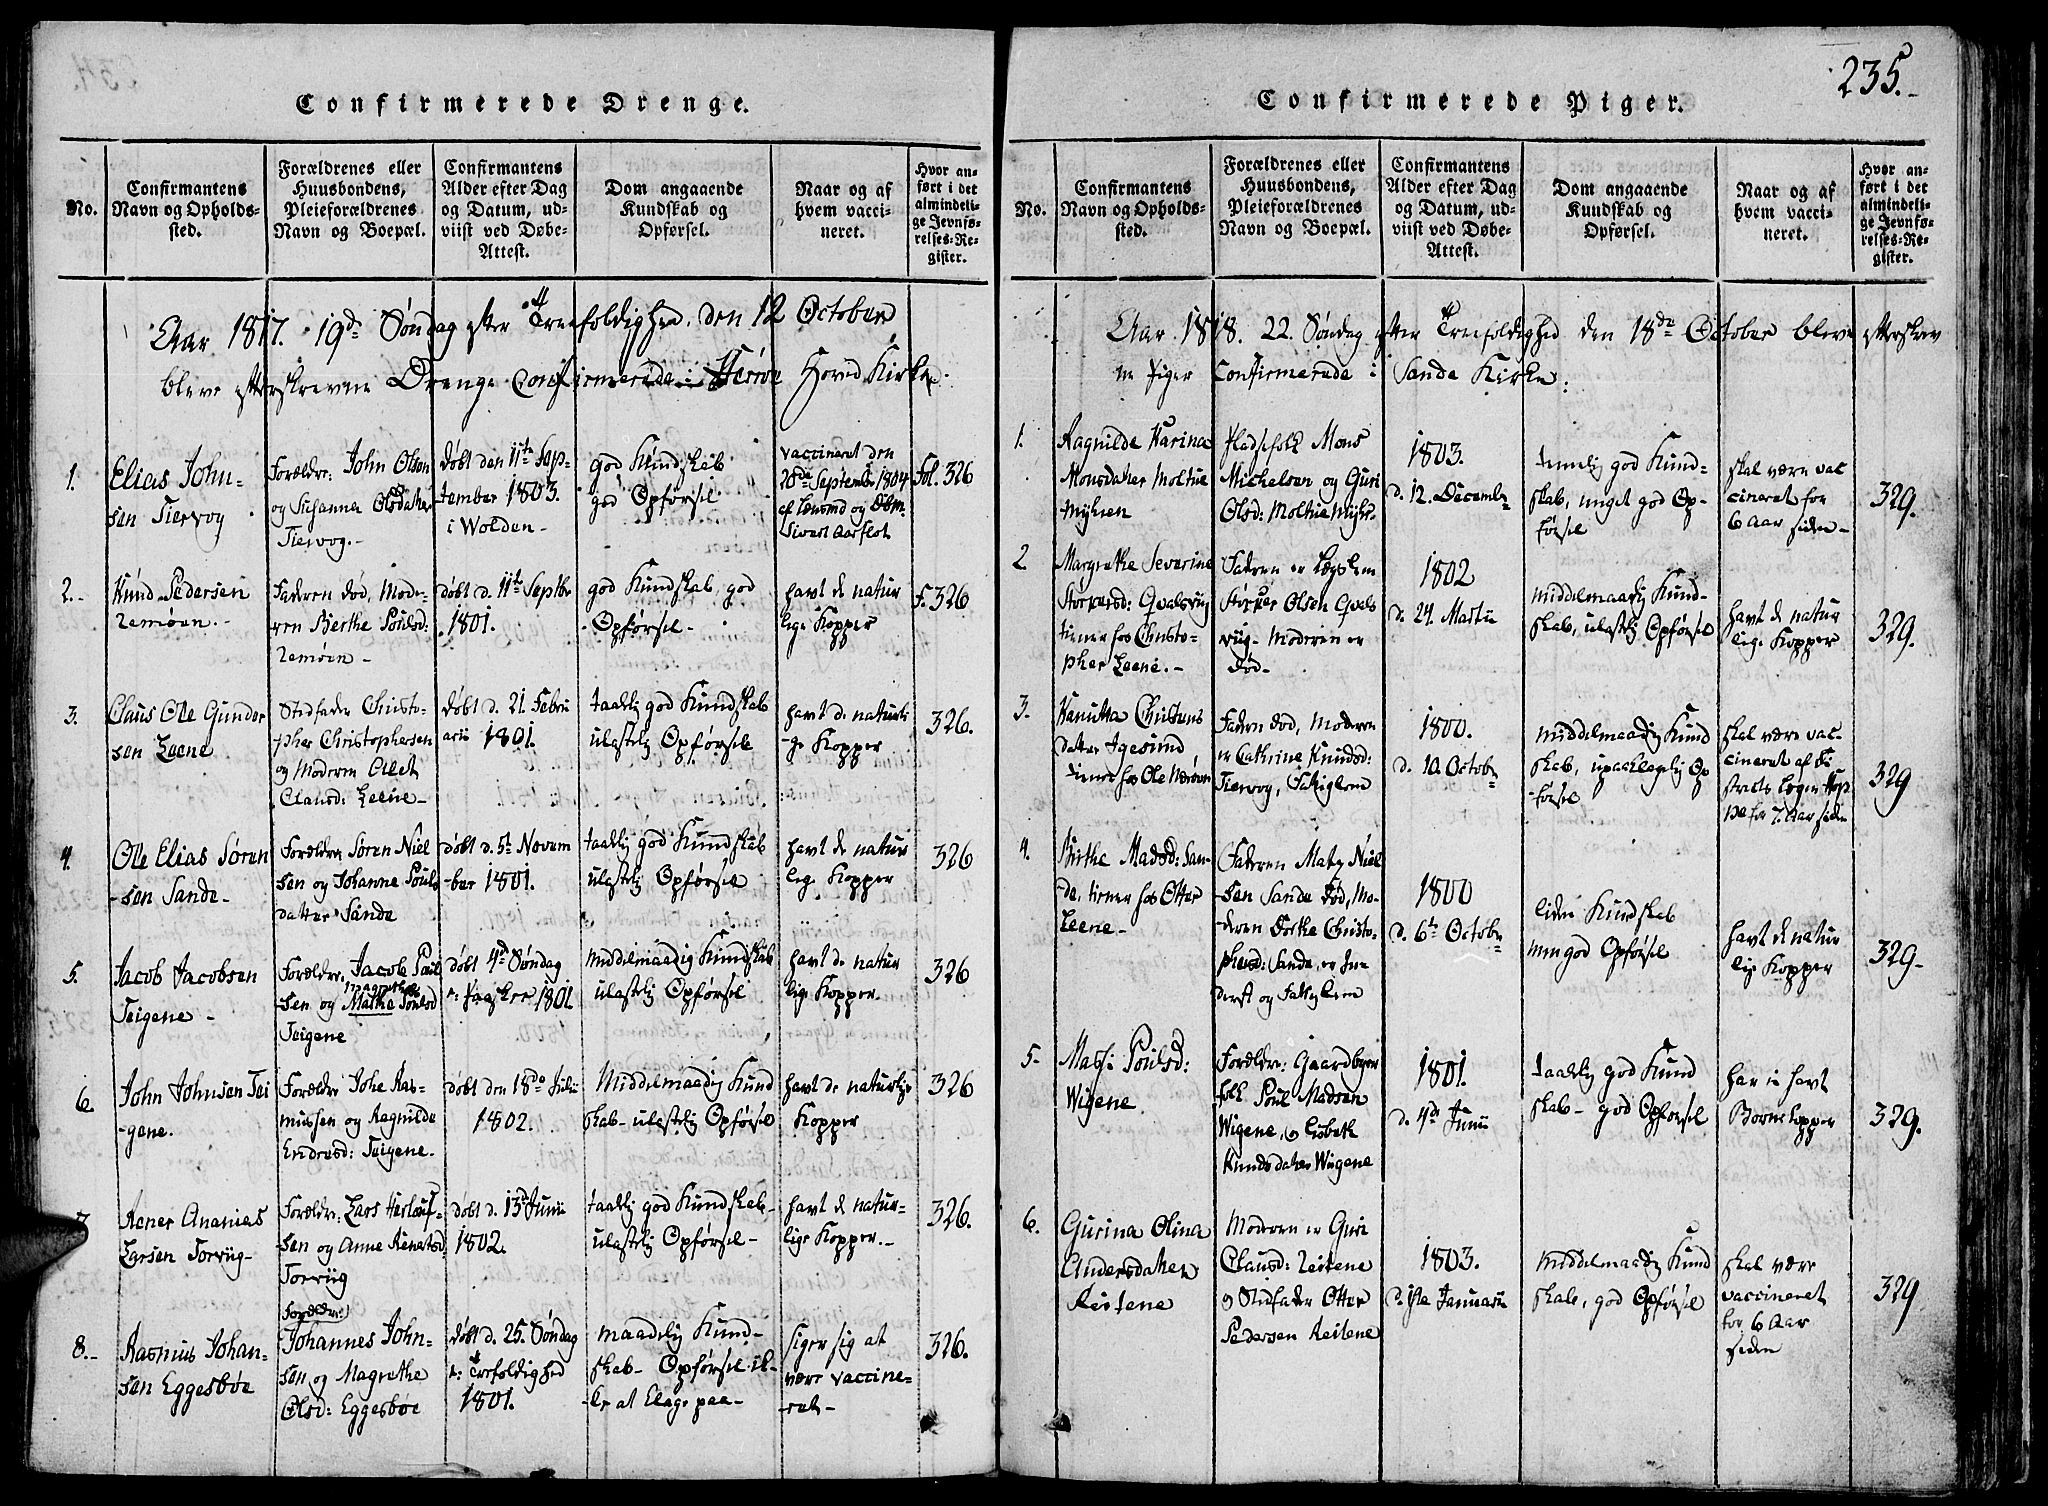 235.
Confirmerede Drenge.
No.
Confirmantens
Navn og Opholds-
sted.
Forældrenes eller
Huusbondens,
Pleieforældrenes
Navn og Boepæl.
Confirmantens
Alder efter Dag
og Datum, ud-
viist ved Døbe-
Attest.
Dom angaaende
Kundskab og
Opførsel.
Naar og af
hvem vacci-
neret.
Hvor an-
ført i det
almindeli-
ge Jevnfø-
relses-Re-
gister.
Aar 1817. 19de Søndag efter Trefoldighed, den 12 October
bleve efterskrevne Drenge Confirmerede i Herröe Hoved Kirke.
1.
Elias John-
sen Tiervog
Forældre: John Olsen
og Susanna Olsdatter
Tiervog.-
døbt den 11te Sep-
tember 1803.
i Wolden-
god Kundskab
god Opførsel
vaccineret den
20de Septemb 1804
af
Sivert Aarflot
Fol. 326
2.-
Knud Pedersen
Remøen.-
Faderen død, Mode-
ren Berthe Poulsd:
Remøen-
døbt d. 11te Septbr
1801.
god Kundskab, god
Opførsel-
havt de natur
lige Kopper
F. 326
3.
Claus Ole Gunder
sen Leene
Stedfader Christo-
pher Christophersen
og Moderen Ollet
Clausd: Leene-
døbt d. 21. Febru
arii 1801.
taalelig god Kundskab
ulastelig Opførsel
havt de naturli
-ge Kopper
326.
4.
Ole Elias Sören
-sen Sande-
Forældre Søren Niel
sen og Johanne Pouls
datter Sande
døbt d. 5te Novem
-ber 1801.
taalelig god Kundskab
ulastelig Opførsel
havt de natur
lige Kopper
326
5.
Jacob Jacobsen
Teigene-
Forældre, Jacob Poul
-sen og Magrethe Mathe Poulsd
Teigene
døbt 4de Søndag
e: Paaske 1801
Middelmaadig Kundskab
ulastelig Opførsel
havt de natur
lige Kopper.
326
6.
John Johnsen Tei
-gene.
Forældre Johe Ras-
mussen og Ragnilde
Endresd: Teigene.
døbt den 18de Julii
1802.
Middelmaadig Kund
skab- ulastelig Opførsel
havt de naturlige
Kopper
326
7.
Abner Ananias
Larsen Torviig-
Forældre: Lars Herlouf-
sen og Anne Renatsd
Torviig
døbt d. 13de Junii
1802.
taalelig god Kundskab-
ulastelig Opførsel-
havt de natur-
lige Kopper.-
326.
8.-
Rasmus Johan-
sen Eggesbøe
Forældre:
Johannes John-
sen og Magrethe
Olsd: Eggesbøe
døbt d. 25. Søndag
e: Trefoldighed
1801.
maadelig Kund-
skab- Opførsel ik-
ke at klage paa-
siger sig at
være vaccine-
ret-
326.
Confirmerede Piger.
No.
Confirmantens
Navn og Opholds-
sted.
Forældrenes eller
Huusbondens,
Pleieforældrenes
Navn og Boepæl.
Confirmantens
Alder efter Dag
og Datum, ud-
viist ved Døbe-
Attest.
Dom angaaende
Kundskab og
Opførsel.
Naar og af
hvem vacci-
neret.
Hvor an-
ført i det
almindeli-
ge Jevnfø-
relses-Re-
gister.
Aar 1818. 22. Søndag efter Trefoldighed den 18de October bleve efterskrev
ne Piger Confirmerede i Sande Kirke:
1.
Ragnilde Karina
Monsdatter Moltue
Myhren
Pladsfolk Mons
Michelsen og Guri
Olsd: Moltue Myhr-
1803.
d. 12. Decembr
temelig god Kund-
skab, meget god Op-
førsel
skal være vac
cineret for
6 Aar siden-
329.
2
Margrethe Severine
Storkersd: Qvalsvug
tiener hos Christo-
pher Leene.-
Faderen er Lægslem
Storker Olsen Qvals
viig- Moderen er
død-
1802
d. 24. Martii
middelmaadig Kund-
skab, ulastelig Opførsel
havt de natur
lige Kopper
329.
3.
Kanutta Christens
datter Igesund
tiener hos Ole Nærøen
Faderen død, Moderen
er Cathrine Knudsd:
Tiervog, Fattiglem
1800.
d. 10. Octobr
middelmaadig Kund
skab, upaaklagelig Op
-førsel
skal være vac-
cineret af Di
stricts Læge Hop
pe for 7. Aar siden
329
4.
Birthe Madsd: San-
de, tiener hos Otter
Leene-
Faderen Matz Niel
-sen Sande død, Mo-
-deren Dorthe Christo-
phersd: Sande, er In-
derst og Fattiglem
1800
d. 6te Octobr
liden Kundskab
men god Opførsel
havt de natur
lige Kopper
329-
5-
Massi Poulsd:
Wigene
Forældre: Gaardbruger
folk Poul Madsen
Wigene, og Lisbeth
Knudsdatter Wigene
1801.
d. 4de Junii
taalelig god Kund
skab- god Opførsel
har ei havt
Børnekopper
329.
6.
Gurina Olina
Andersdatter
Reitene
Moderen er Guri
Clausd: Reitene
og Stedfader Otter
Pedersen Reitene
1803.
d. 1ste Januarii
Middelmaadig Kund
skab, god Opførsel
skal være
vaccineret
for 6 Aar
siden
329